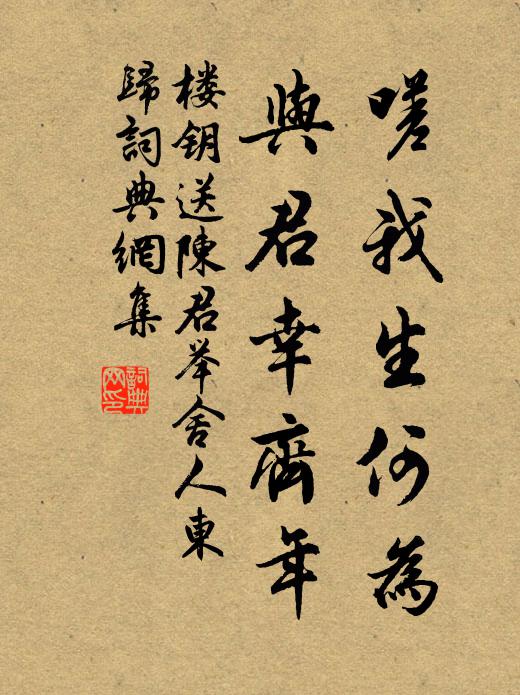 嗟我生何為
與君幸齊年
楼鑰送陳君举舍人東
歸詞典網集
詞典网印